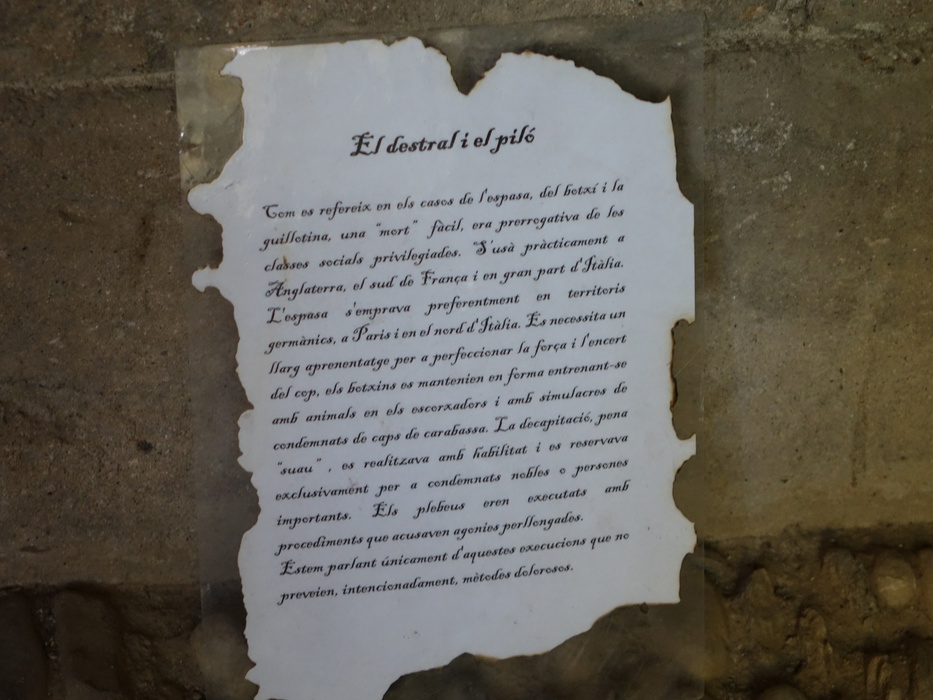 El destral i el piló
Com es refereix en els casos de l'espasa, del botxí i la
guillotina, una "mort" fàcil, era prerrogativa de les
classes socials privilegiades. S'usà pràcticament a
Anglaterra, el sud de França i en gran part d'Itàlia.
L'espasa s'emprava preferentment en territoris
germànics, a Paris i en el nord d'Itàlia. Es necessita un
llarg aprenentatge per a perfeccionar la força i l'encert
del cop, els botxins es mantenien en forma entrenant-se
amb animals en els escorxadors i amb simulacres de
condemnats de caps de carabassa. La decapitació, pena
"suau" , es realitzava amb habilitat i es reservava
exclusivament per a condemnats nobles o persones
importants. Els plebeus eren executats amb
procediments que acusaven agonies perllongades.
Estem parlant únicament d'aquestes execucions que no
preveien, intencionadament, mètodes dolorosos.